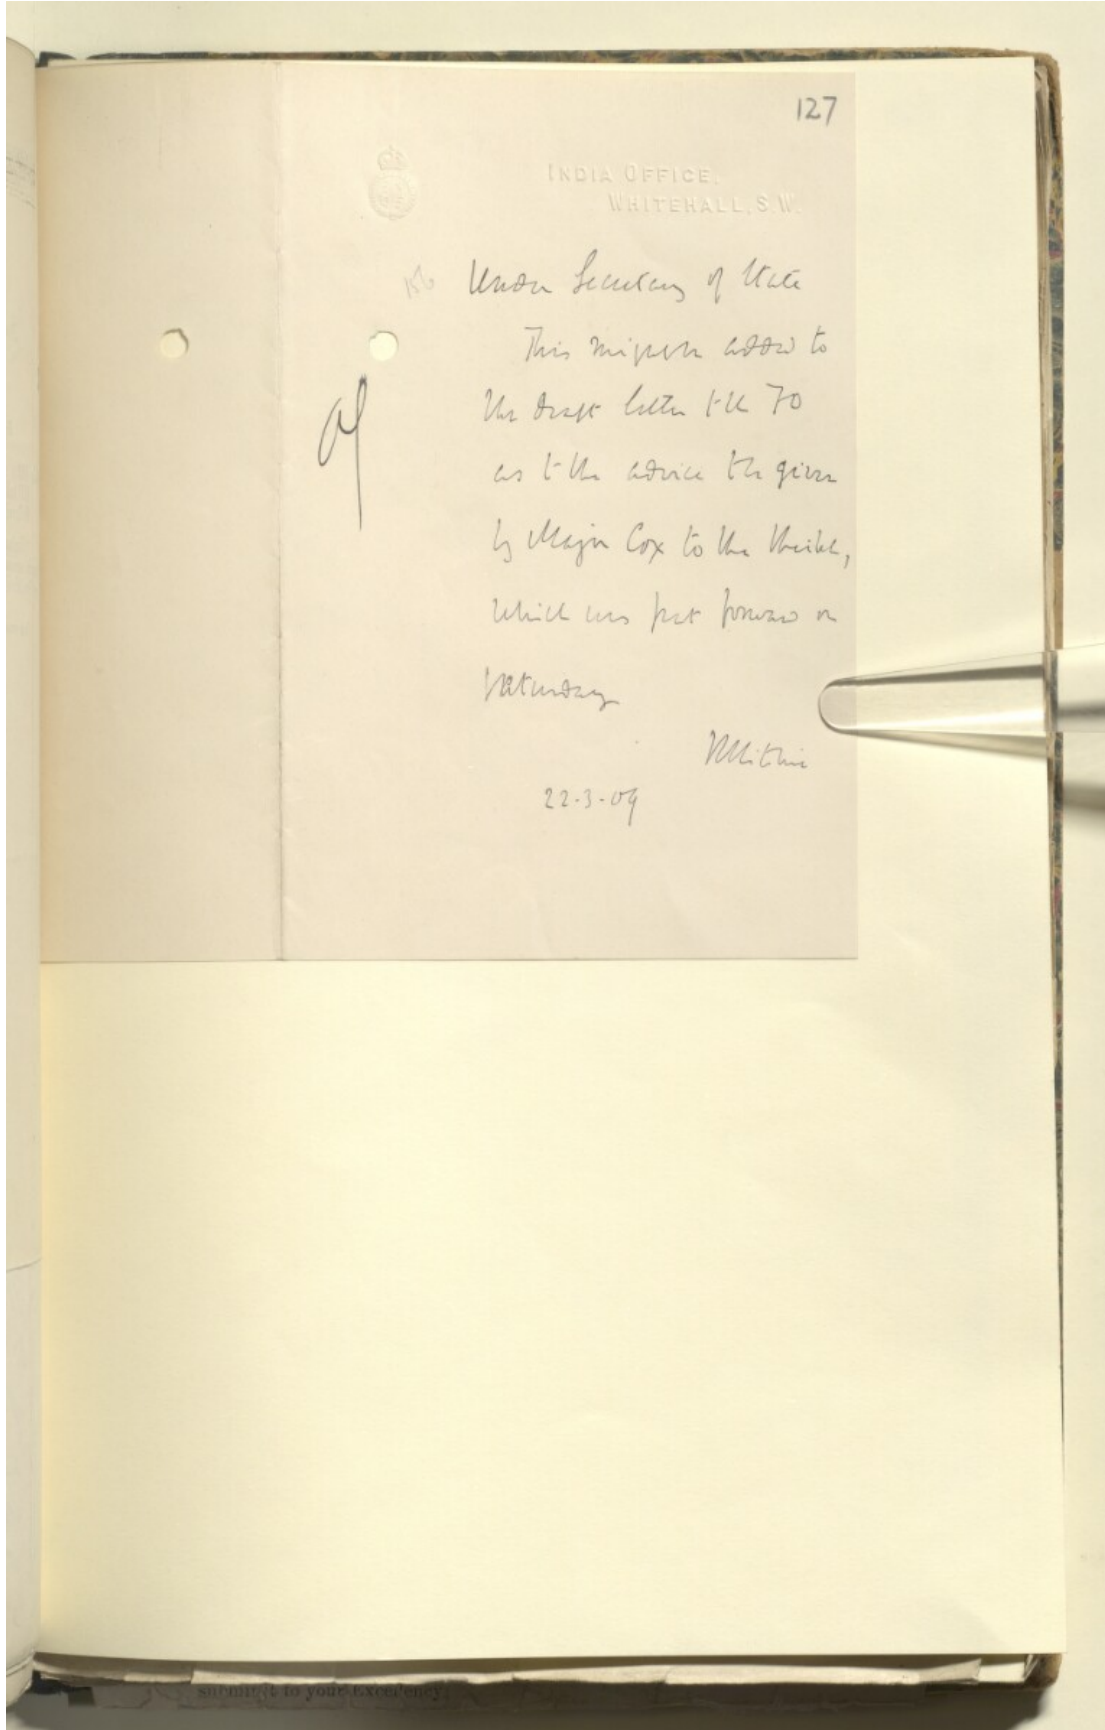 127
INDIA OFFICE,
WHITEHALL, S.W.
156
Under Secretary of State
This might be added to
the draft letter to the FO
as to the advice to be given
by Major Cox to the Sheikh,
which was put forward on
Saturday
RRitchie
22-3-09
submit to your Excellency.